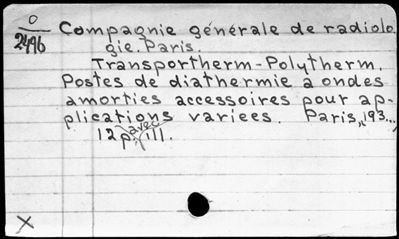 0
2496
Compagnie générale de radiolo
gie. Paris.
Transportherm-Polytherm.
Postes de diathermie a ondes
amorties accessoires pour ap-
plications variees. Paris, 193...,
12p. avec ill.
X